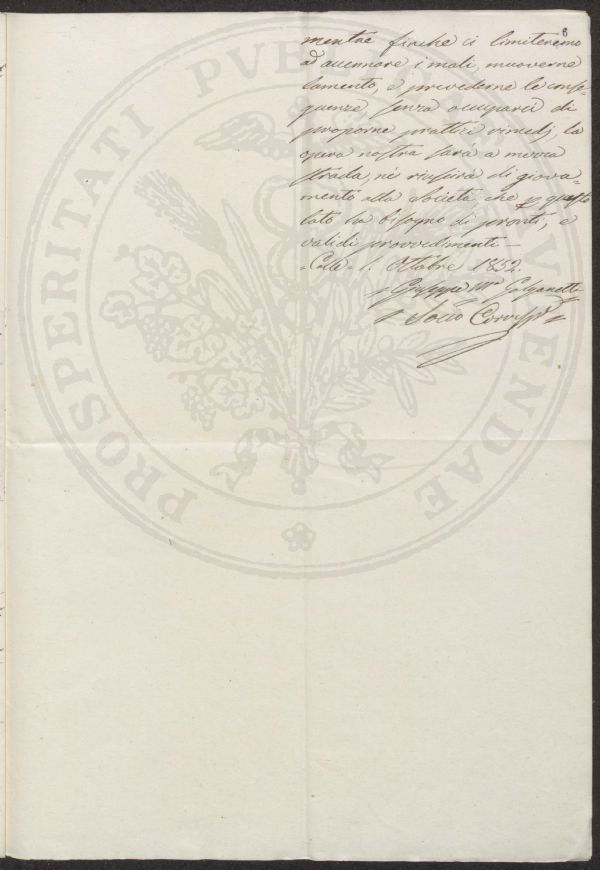 6
mentre finche ci limiteremo
ad accennare i mali, muoverne
lamento, e prevederne le conse=
guenze, senza occuparci di
proporne prattici rimedj, la
opera nostra sarà a mezza
strada, nè riuscirà di giova=
mento alla Società, che p questo
lato ha bisogno di pronti, e
validi provvedimenti —
Colle 1. Ottobre 1852.
Giuseppe Mª Galganetti
Socio Corrisp
PROSPERITATI PVBLICAE AVGENDAE